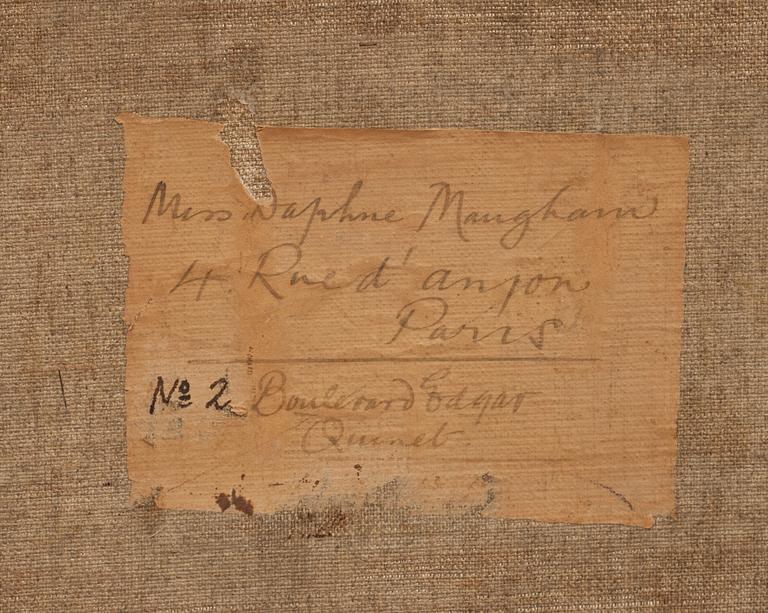 Miss Daphne Maugham
4 Rue d'anjou
Paris
No 2 Boulevard Edgar
Quinet